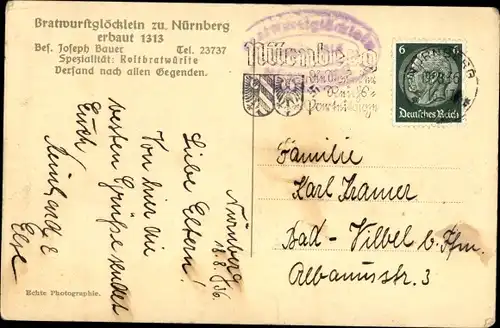 Bratwurstglöcklein zu Nürnberg
erbaut 1313
Bes. Joseph Bauer Tel. 23737
Spezialität: Rostbratwürste
Versand nach allen Gegenden.
Bratwurstglöcklein
Nürnberg
die Stadt der
Reichs-
Parteitage
NÜRNBERG
6 6
Deutsches Reich
Nürnberg
18.8.36.
Liebe Eltern!
Von hier die
besten Grüße sendet
Euch
Else
Familie
Karl Kramer
Bad-Vilbel b. Ffm.
Albanusstr. 3
Echte Photographie.